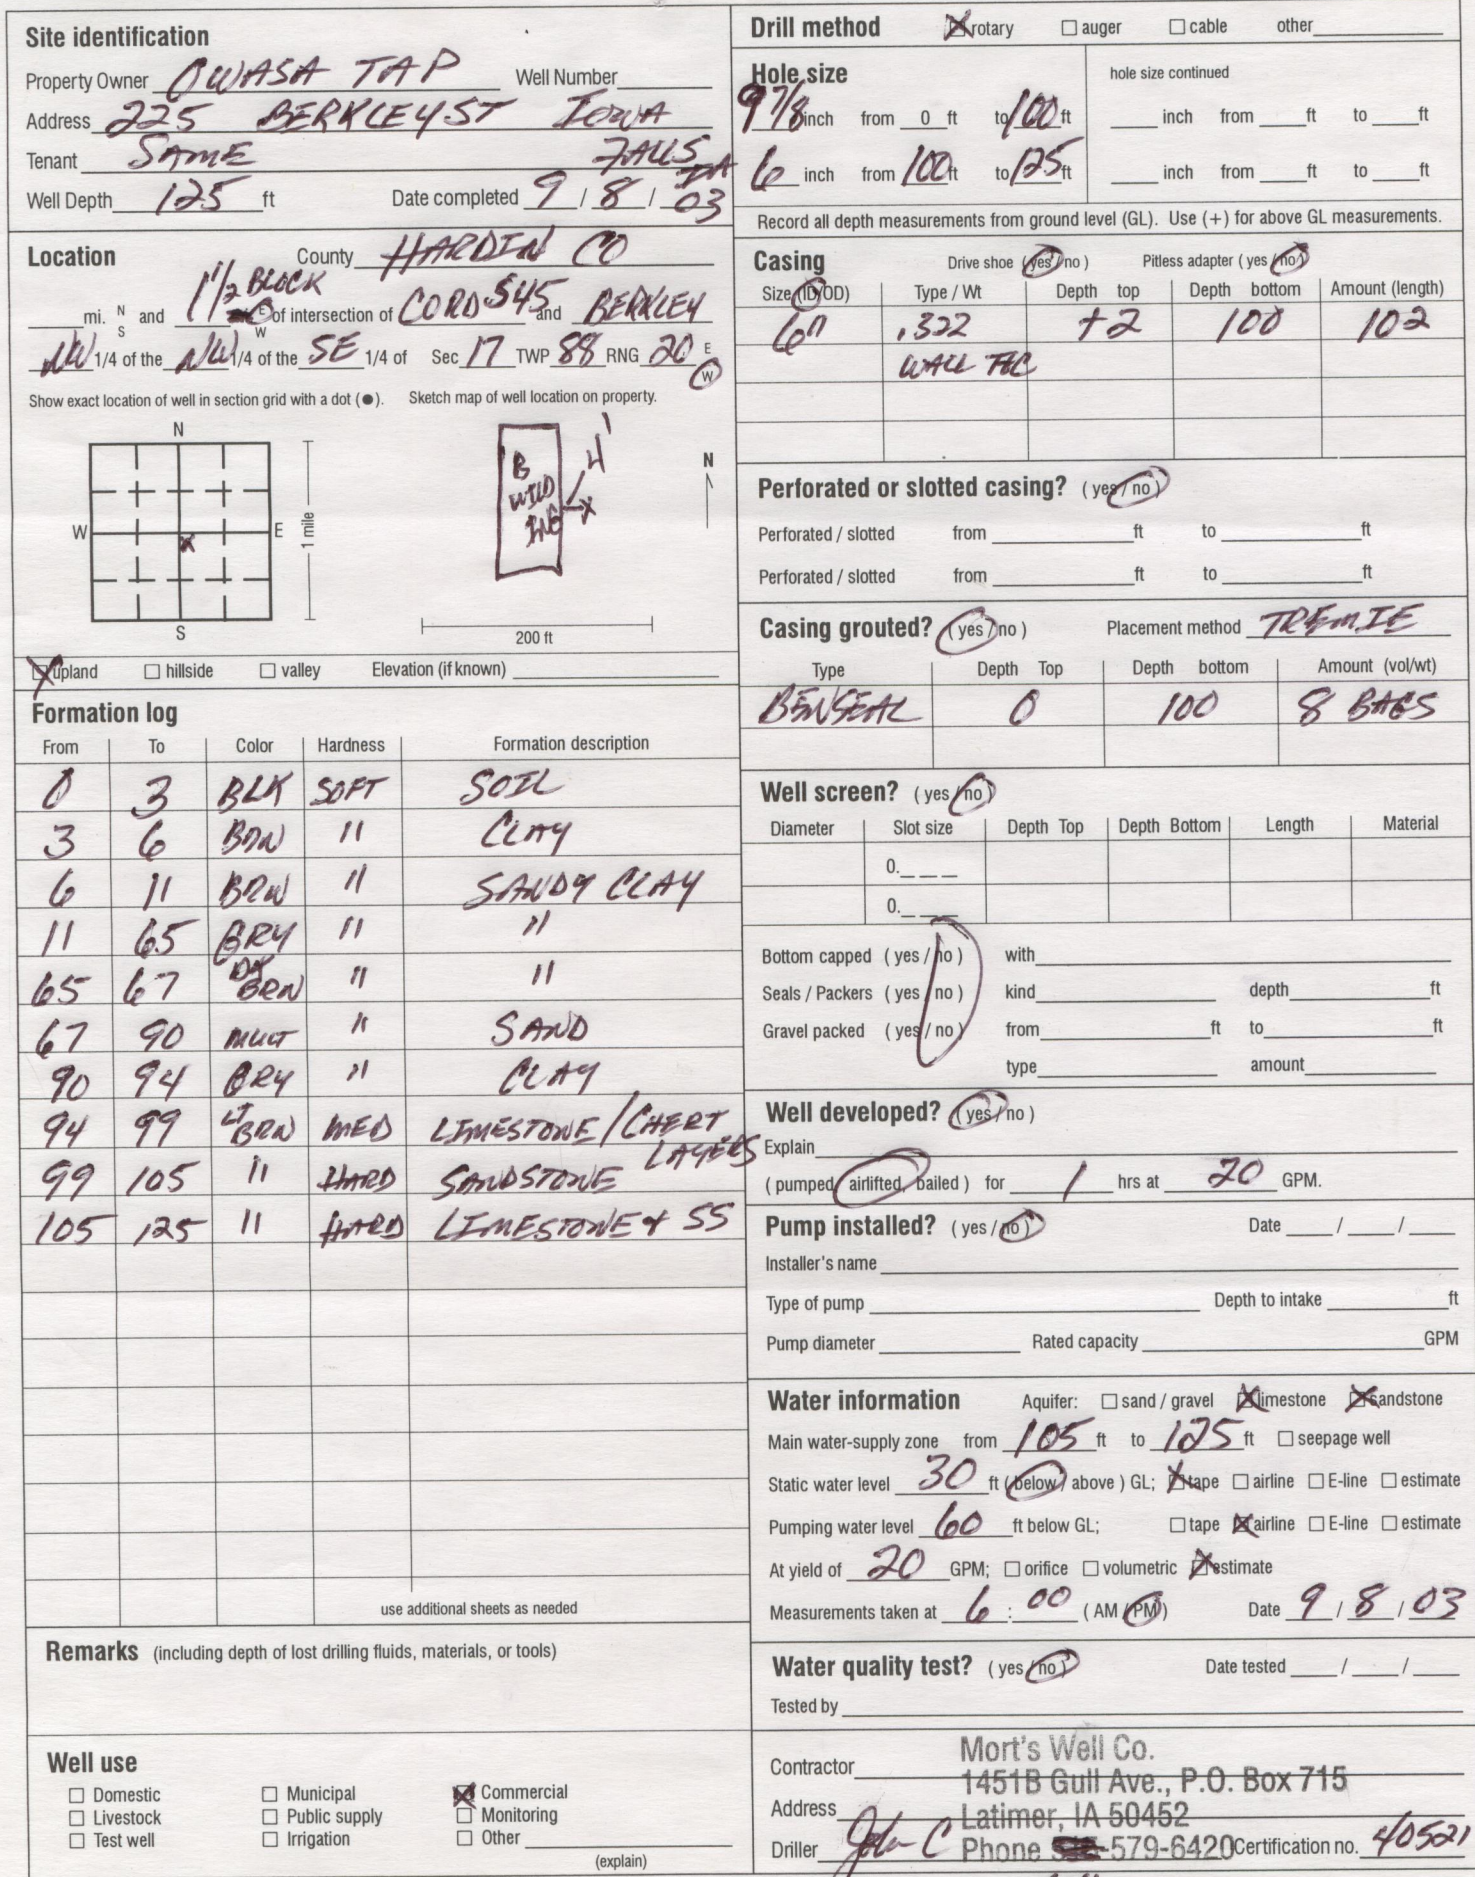 Site identification
Property Owner OWASA TAP Well Number
Address 225 BERKLEY ST IOWA
Tenant SAME FALLS IA
Well Depth 125 ft Date completed 9 / 8 / 03
Location County HARDIN CO
1 1/2 BLOCK
mi. N S and E W of intersection of CORD S45 and BERKLEY
NW 1/4 of the NW 1/4 of the SE 1/4 of Sec 17 TWP 88 RNG 20 E W
Show exact location of well in section grid with a dot (●). Sketch map of well location on property.
N
W E
S
1 mile
BUILDING
4'
X
N
200 ft
upland hillside valley Elevation (if known)
Formation log
From To Color Hardness Formation description
0 3 BLK SOFT SOIL
3 6 BRN " CLAY
6 11 BRN " SANDY CLAY
11 65 GRY " "
65 67 DK BRN " "
67 90 MULT " SAND
90 94 GRY " CLAY
94 99 LT BRN MED LIMESTONE / CHERT LAYERS
99 105 " HARD SANDSTONE
105 125 " HARD LIMESTONE + SS
use additional sheets as needed
Remarks (including depth of lost drilling fluids, materials, or tools)
Well use
Domestic Municipal Commercial
Livestock Public supply Monitoring
Test well Irrigation Other
(explain)
Drill method rotary auger cable other
Hole size hole size continued
9 7/8 inch from 0 ft to 100 ft inch from ft to ft
6 inch from 100 ft to 125 ft inch from ft to ft
Record all depth measurements from ground level (GL). Use (+) for above GL measurements.
Casing Drive shoe (yes / no) Pitless adapter (yes / no)
Size (ID/OD) Type / Wt Depth top Depth bottom Amount (length)
6" .322 +2 100 102
WALL T&C
Perforated or slotted casing? (yes / no)
Perforated / slotted from ft to ft
Perforated / slotted from ft to ft
Casing grouted? (yes / no) Placement method TREMIE
Type Depth Top Depth bottom Amount (vol/wt)
BENSEAL 0 100 8 BAGS
Well screen? (yes / no)
Diameter Slot size Depth Top Depth Bottom Length Material
0._ _ _
0._ _ _
Bottom capped (yes / no) with
Seals / Packers (yes / no) kind depth ft
Gravel packed (yes / no) from ft to ft
type amount
Well developed? (yes / no)
Explain
(pumped, airlifted, bailed) for 1 hrs at 20 GPM.
Pump installed? (yes / no) Date / /
Installer's name
Type of pump Depth to intake ft
Pump diameter Rated capacity GPM
Water information Aquifer: sand / gravel limestone sandstone
Main water-supply zone from 105 ft to 125 ft seepage well
Static water level 30 ft (below / above) GL; tape airline E-line estimate
Pumping water level 60 ft below GL; tape airline E-line estimate
At yield of 20 GPM; orifice volumetric estimate
Measurements taken at 6 : 00 (AM / PM) Date 9 / 8 / 03
Water quality test? (yes / no) Date tested / /
Tested by
Contractor Mort's Well Co.
1451B Gull Ave., P.O. Box 715
Address Latimer, IA 50452
Driller John C Phone -579-6420 Certification no. 40521